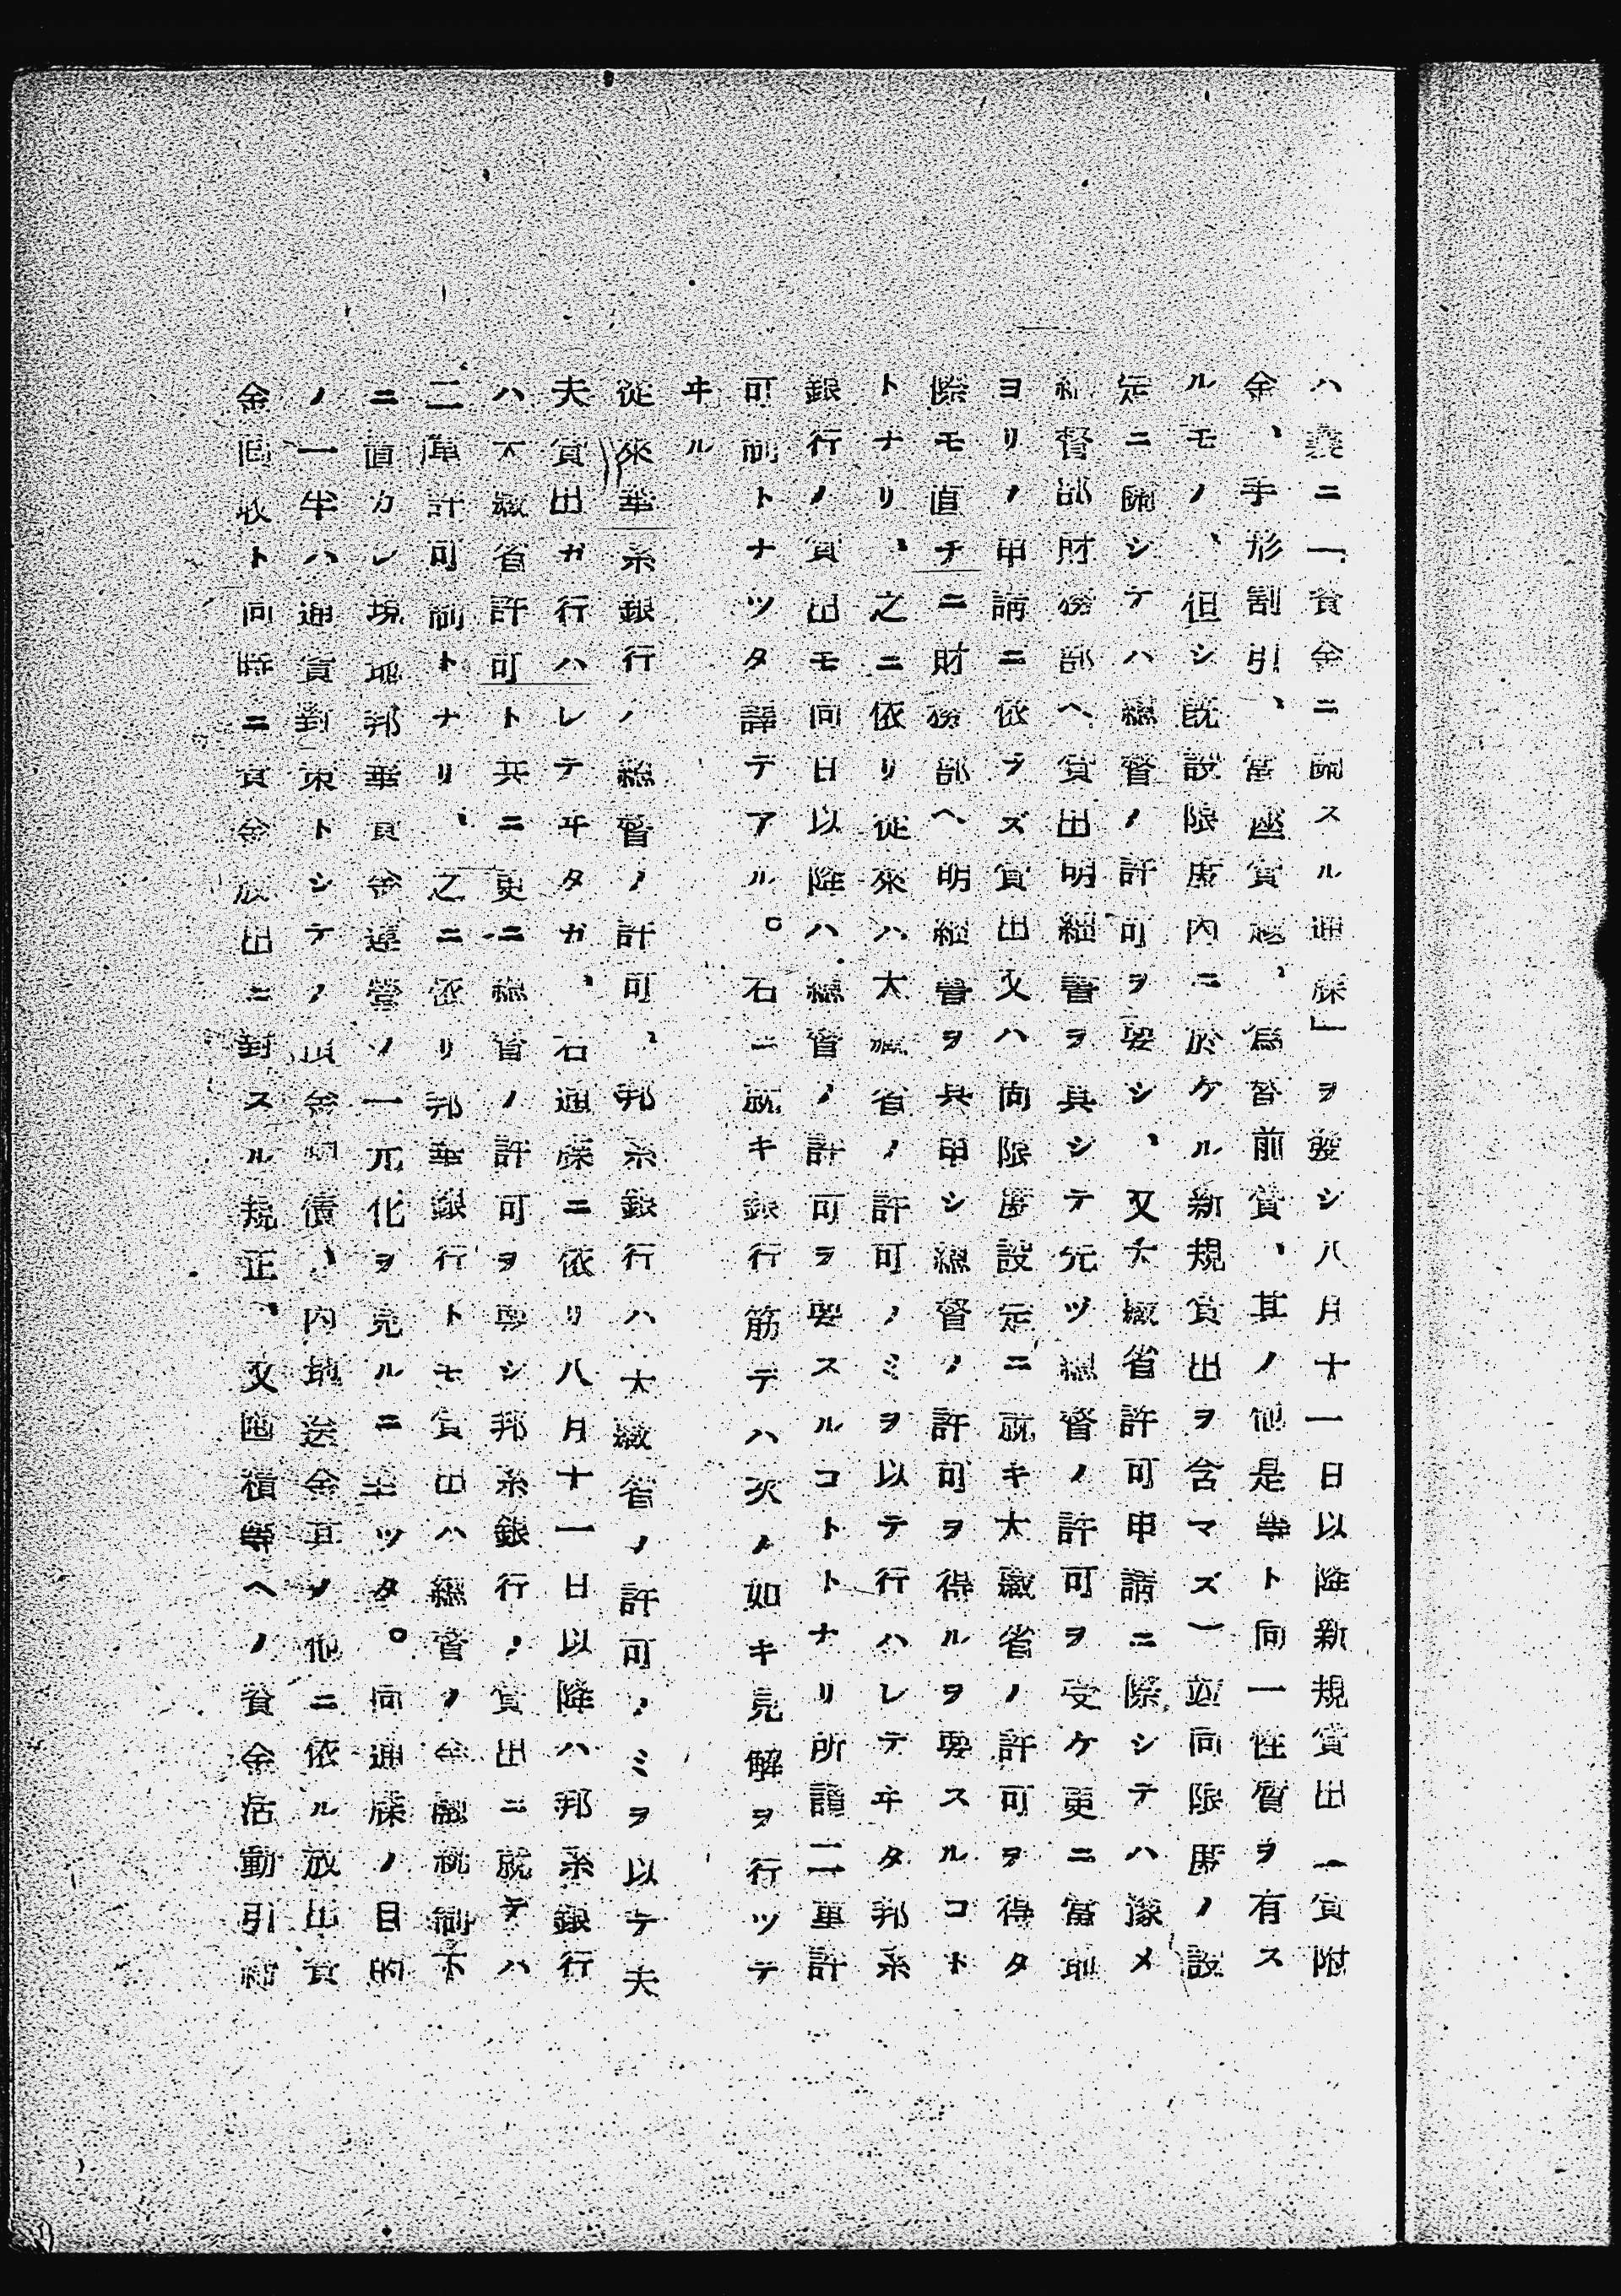 ハ曩ニ「資金ニ關スル通牒」ヲ發シ八月十一日以降新規貸出(貸附
金、手形割引、當座貸越、爲替前貸、其ノ他是等ト同一性質ヲ有ス
ルモノ、但シ既設限度内ニ於ケル新規貸出ヲ含マズ)竝同限度ノ設
定ニ關シテハ總督ノ許可ヲ要シ、又大藏省許可申請ニ際シテハ豫メ
總督部財務部ヘ貸出明細書ヲ具シテ先ヅ總督ノ許可ヲ受ケ更ニ當地
ヨリノ申請ニ依ラズ貸出又ハ同限度設定ニ就キ大藏省ノ許可ヲ得タ
際モ直チニ財務部ヘ明細書ヲ具申シ總督ノ許可ヲ得ルヲ要スルコト
トナリ、之ニ依リ從來ハ大藏省ノ許可ノミヲ以テ行ハレテヰタ邦系
銀行ノ貸出モ同日以降ハ總督ノ許可ヲ要スルコトトナリ所謂二重許
可制トナツタ譯デアル。右ニ就キ銀行筋デハ次ノ如キ見解ヲ行ツテ
ヰル
從來華系銀行ノ總督ノ許可、邦系銀行ハ大藏省ノ許可ノミヲ以テ夫
夫貸出ガ行ハレテヰタガ、右通牒ニ依リ八月十一日以降ハ邦系銀行
ハ大藏省許可ト共ニ更ニ總督ノ許可ヲ要シ邦系銀行ノ貸出ニ就テハ
二重許可制トナリ、之ニ依リ邦華銀行トモ貸出ハ總督ノ金融統制下
ニ置カレ現地邦華資金運營ノ一元化ヲ見ルニ至ツタ。同通牒ノ目的
ノ一半ハ通貨對策トシテノ預金、債、内地送金其ノ他ニ依ル放出資
金囘收ト同時ニ資金放出ニ對スル規正、又囤積等ヘノ資金活動引締